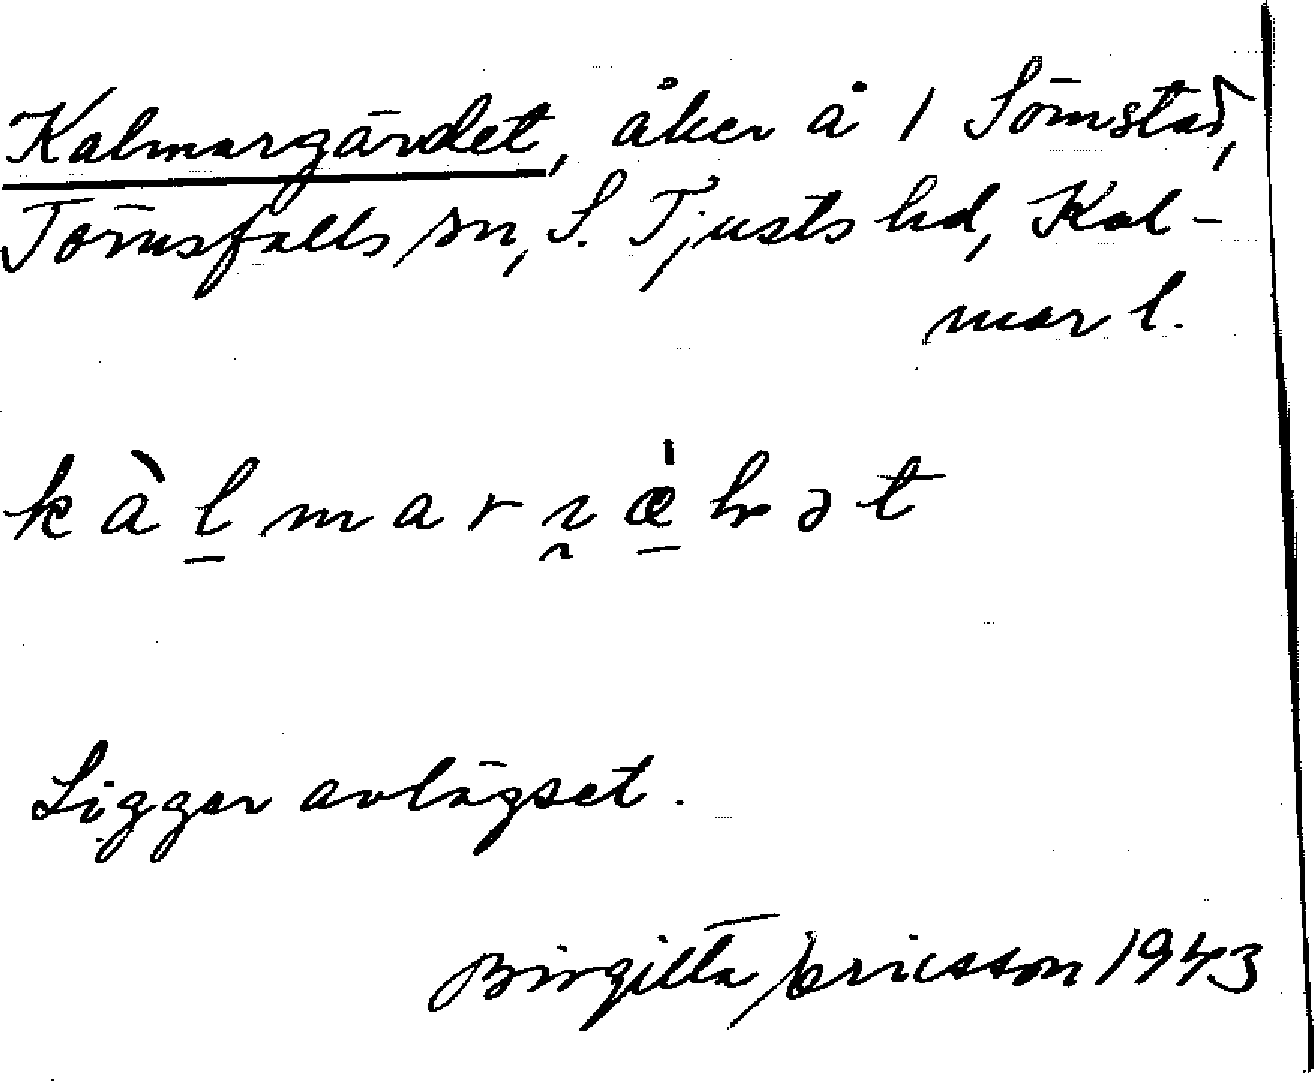 Kalmargärdet, åker å 1 Sörnstad,
Törnsfalls sn, S. Tjusts hd, Kal-
mar l.
kàlmar
Ligger avlägset.
Birgitta Ericsson 1943